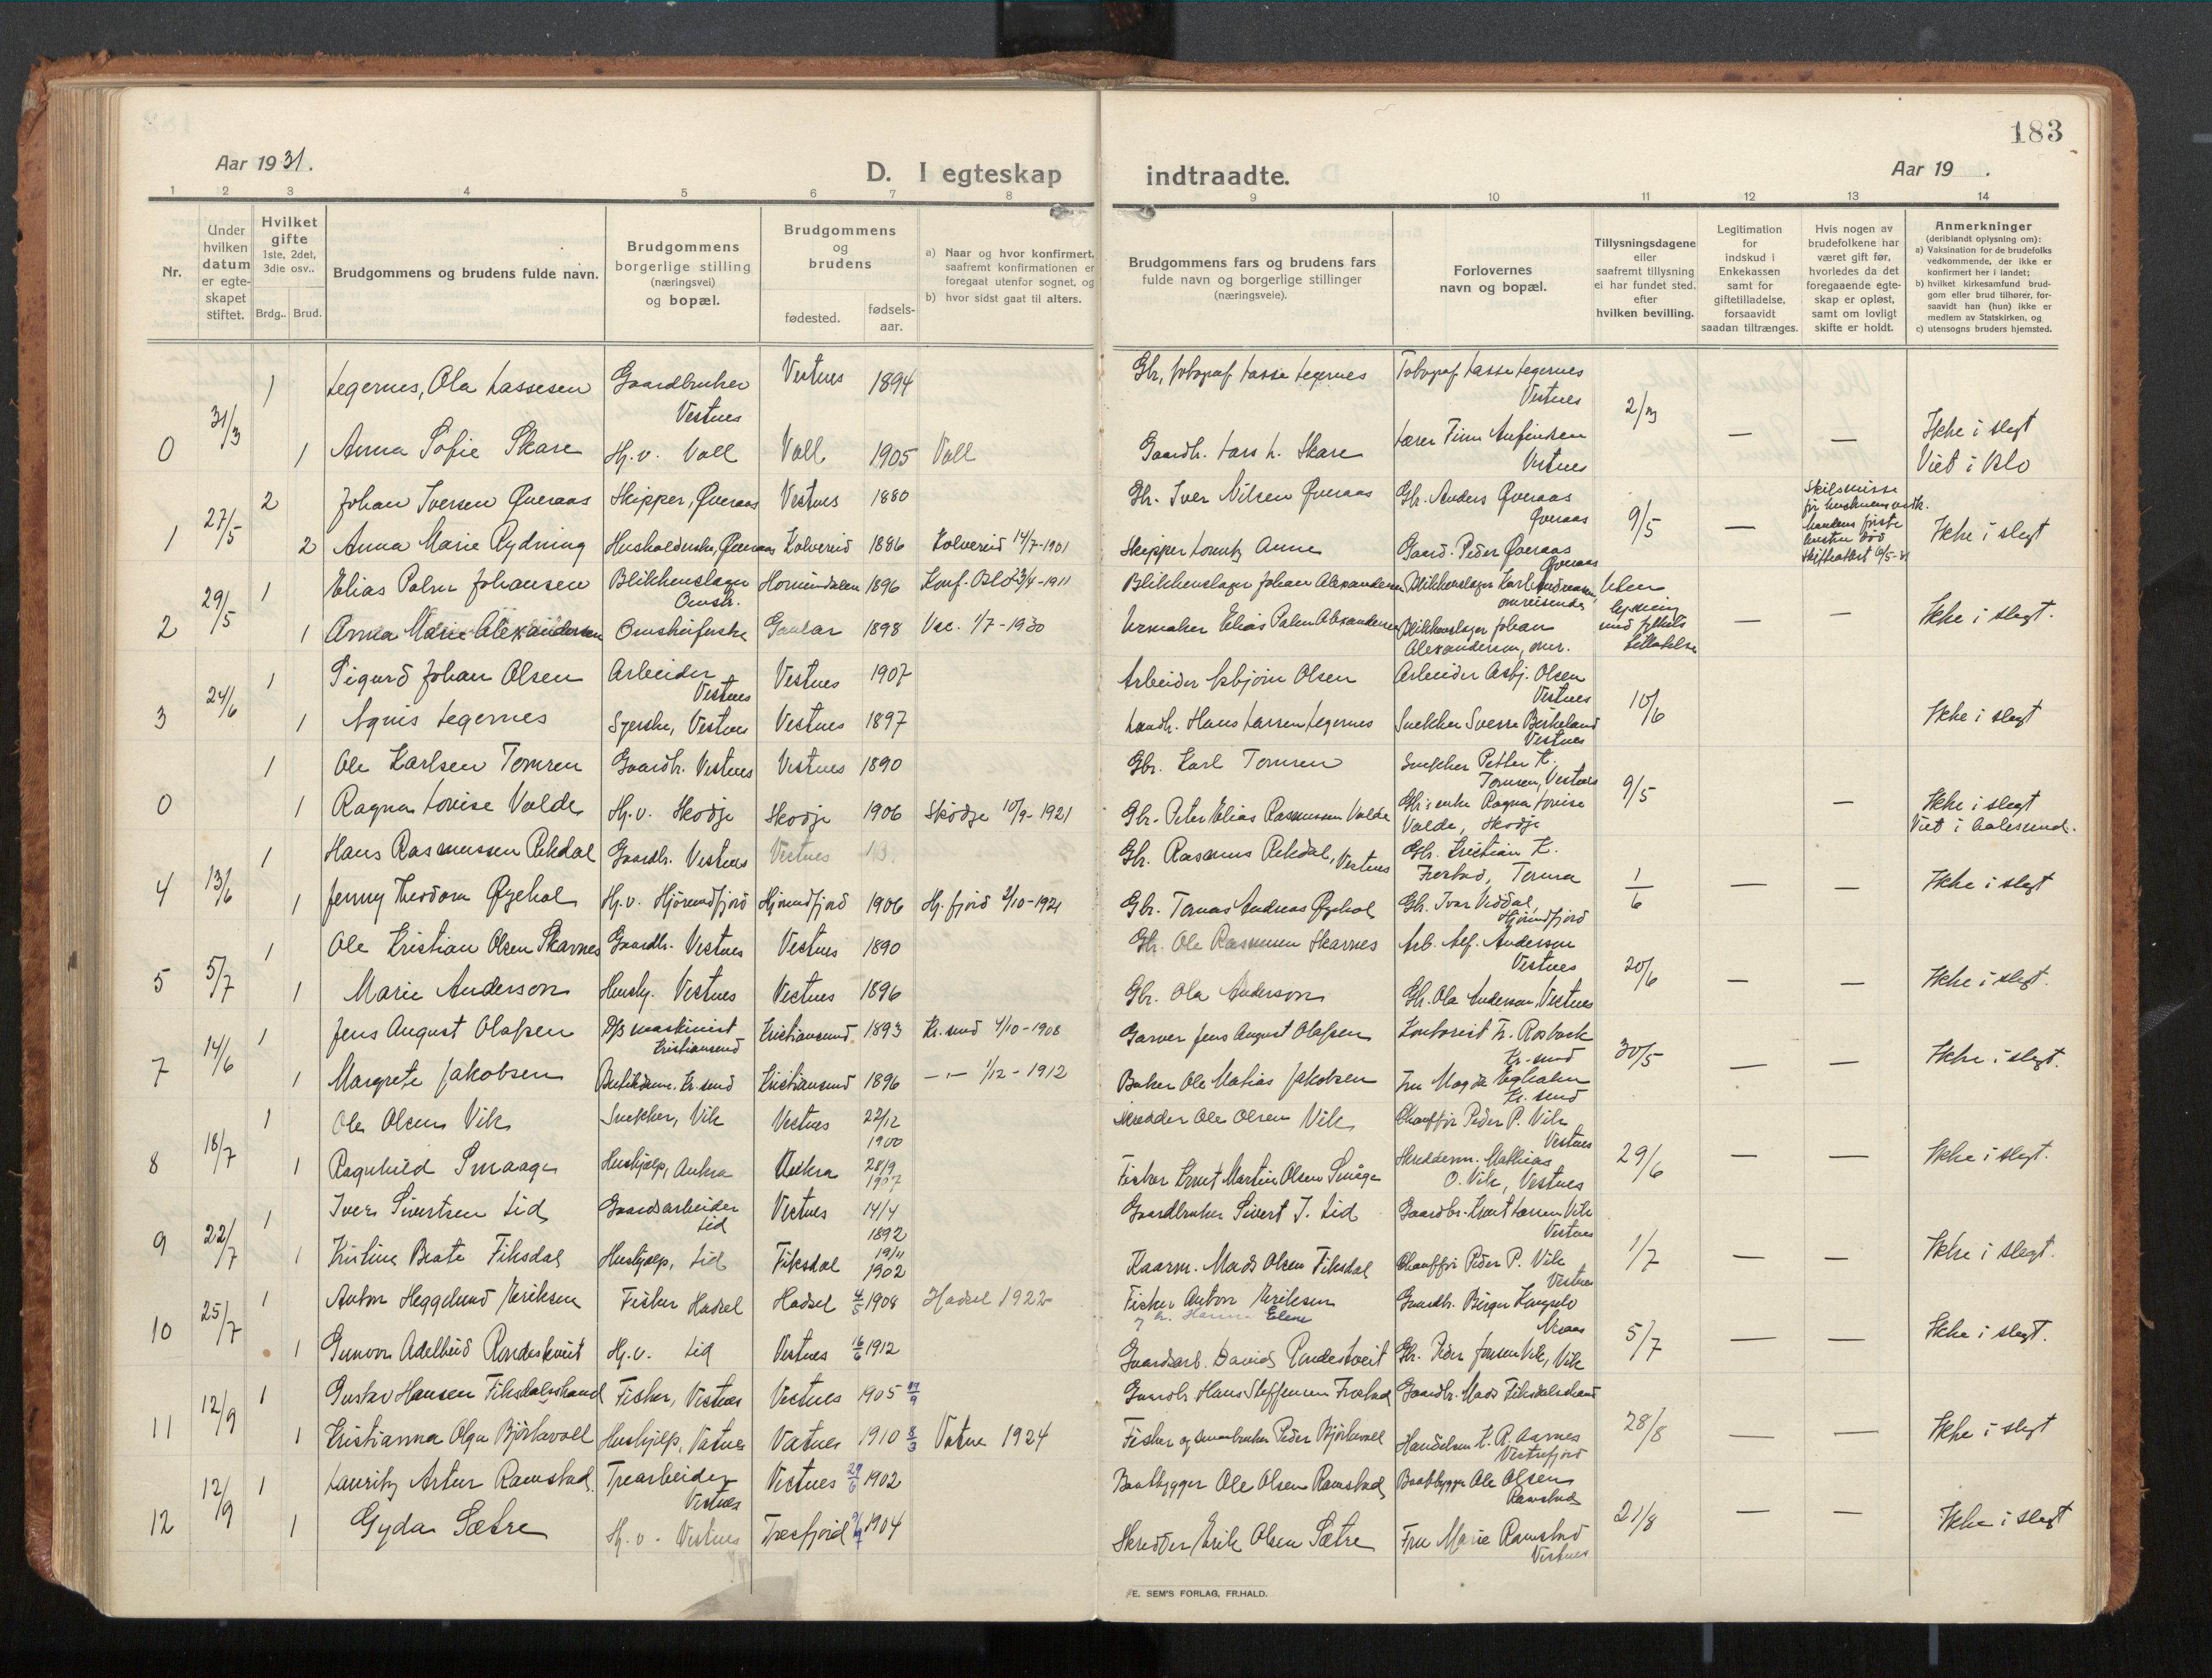 183
Aar 1931.
D. I egteskap indtraadte.
Aar 19 .
1 2 3 4 5 6 7 8 9 10 11 12 13 14
Nr.
Under hvilken datum er egteskapet stiftet.
Hvilket gifte 1ste, 2det, 3die osv..
Brdg.. Brud.
Brudgommens og brudens fulde navn.
Brudgommens borgerlige stilling (næringsvei) og bopæl.
Brudgommens og brudens
fødested.
fødsels-aar.
a) Naar og hvor konfirmert, saafremt konfirmationen er foregaat utenfor sognet, og
b) hvor sidst gaat til alters.
Brudgommens fars og brudens fars fulde navn og borgerlige stillinger (næringsveie).
Forlovernes navn og bopæl.
Tillysningsdagene eller saafremt tillysning ei har fundet sted, efter hvilken bevilling.
Legitimation for indskud i Enkekassen samt for giftetilladelse, forsaavidt saadan tiltrænges.
Hvis nogen av brudefolkene har været gift før, hvorledes da det foregaaende egteskap er opløst, samt om lovligt skifte er holdt.
Anmerkninger (deriblandt oplysning om):
a) Vaksination for de brudefolks vedkommende, der ikke er konfirmert her i landet;
b) hvilket kirkesamfund brudgom eller brud tilhører, forsaavidt han (hun) ikke er medlem av Statskirken, og
c) utensogns bruders hjemsted.
0 31/3 1 Legernes, Ola Lassesen Gaardbruker Vestnes Vestnes 1894 Gbr, fotograf Lasse Legernes Fotograf Lasse Legernes Vestnes 2/3
1 Anna Sofie Skare Hj.v. Voll Voll 1905 Voll Gaardbr. Lars L. Skare Lærer Finn Vestnes — — Ikke i slegt Viet i Oslo
1 27/5 2 Johan Iversen Øveraas Skipper, Øveraas Vestnes 1880 Gbr. Iver Nilsen Øveraas Gbr. Anders Øveraas Øveraas 9/5 Skilsmisse
2 Anna Marie Rydning Husholderske, Øveraas Kolvereid 1886 Kolvereid 14/7-1901 Skipper Lorentz Anne Gaard. Peder Øveraas Øveraas — Ikke i slegt
2 29/5 1 Elias Palin Johansen Blikkenslager Omstr. Hornindalen 1896 Konf. Oslo 23/4-1911 Blikkenslager Johan Alexandersen Blikkenslager Karl Andreasen, omreisende Uten lysning med fylkets tillatelse
1 Anna Marie Alexandersen Omstreiferske Gaular 1898 Vac. 1/7-1930 Urmaker Elias Palin Alexandersen Blikkenslager Johan Alexandersen, omr. — — Ikke i slegt.
3 24/6 1 Sigurd Johan Olsen Arbeider Vestnes Vestnes 1907 Arbeider Asbjørn Olsen Arbeider Asbj. Olsen Vestnes 10/6
1 Agnis Legernes Syerske, Vestnes Vestnes 1897 Landh. Hans Larsen Legernes Snekker Sverre Birkeland Vestnes Ikke i slegt
0 1 Ole Karlsen Tomren Gaardbr. Vestnes Vestnes 1890 Gbr. Karl Tomren Snekker Petter K. Tomren, Vestnes 9/5
1 Ragna Lovise Valde Hj.v. Skodje Skodje 1906 Skodje 10/9-1921 Gbr. Peter Elias Rasmussen Valde Gbr's enke Ragna Lovise Valde, Skodje — Ikke i slegt Viet i Aalesund.
4 13/6 1 Hans Rasmussen Rekdal Gaardbr. Vestnes Vestnes Gbr. Rasmus Rekdal, Vestnes Gbr. Kristian K. Frostad, Tomra 1/6
1 Jenny Theodora Øyehol Hj.v. Hjørundfjord Hjørundfjord 1906 Hj.fjord 2/10-1921 Gbr. Tomas Andreas Øyehol Gbr. Ivar Viddal, Hjørundfjord — — Ikke i slegt
5 5/7 1 Ole Kristian Olsen Skarnes Gaardbr. Vestnes Vestnes 1890 Gbr. Ole Rasmussen Skarnes Arb. Alf. Anderson Vestnes 20/6
1 Marie Anderson Hushj. Vestnes Vestnes 1896 Gbr. Ola Anderson Gbr. Ola Anderson, Vestnes — — Ikke i slegt.
7 14/6 1 Jens August Olafsen D/s maskinist Kristiansund Kristiansund 1893 Kr.sund 4/10-1908 Garver Jens August Olafsen Kontorist Fr. Rosback Kr.sund 30/5
1 Margrete Jakobsen Butikdame. Kr.sund Kristiansund 1896 —"— 1/12-1912 Baker Ole Matias Jakobsen Fru Magda Egholm Kr.sund — — Ikke i slegt.
8 18/7 1 Ole Olsen Vik Snekker, Vik Vestnes 22/12 1900 Skredder Ole Olsen Vik Chauffør Peder P. Vik Vestnes 29/6
1 Ragnhild Smaage Hushjælp, Aukra Aukra 28/9 1907 Fisker Knut Martin Olsen Småge Skredderm. Mathias O. Vik, Vestnes — — Ikke i slegt.
9 22/7 1 Iver Sivertsen Lid Gaardsarbeider Lid Vestnes 14/4 1892 Gaardbruker Sivert J. Lid Gaardbr. Knut Larsen Vik Vestnes 1/7
1 Kristine Beate Fiksdal Hushjælp, Lid Fiksdal 19/11 1902 Kaarm. Mads Olsen Fiksdal Chauffør Peder P. Vik Vestnes — — Ikke i slegt.
10 25/7 1 Anton Heggelund Eriksen Fisker Hadsel Hadsel 4/5 1908 Hadsel 1922 Fisker Anton Eriksen Elene Gaardbr. Birger 5/7
1 Gunvor Adelheid Rendestveit Hj.v. Lid Vestnes 16/6 1912 Gaardsarb. David Rendestveit Gbr. Peder Jonsen Vik, Vik — — Ikke i slegt.
11 12/9 1 Gustav Hansen Fiksdalsstrand Fisker, Vestnes Vestnes 1905 Gaardbr Hans Steffensen Frostad Gaardbr. Mads Fiksdalstrand 28/8
1 Kristianna Olga Bjørkavoll Hushjelp, Vatne Vatne 1910 8/3 Vatne 1924 Fisker og smaabruker Peder Bjørkavoll Handelsm. K. R. Aarnes Vestrefjord — — Ikke i slegt
12 12/9 1 Lauritz Artur Ramstad Trearbeider Vestnes Vestnes 29/6 1902 Baatbygger Ole Olsen Ramstad Baatbygger Ole Olsen Ramstad 21/8
1 Gyda Sætre Hj.v. Vestnes Tresfjord 1904 Skredder Erik Olsen Sætre Fru Marie Ramstad Vestnes — — Ikke i slegt
E. SEM'S FORLAG, FR.HALD.